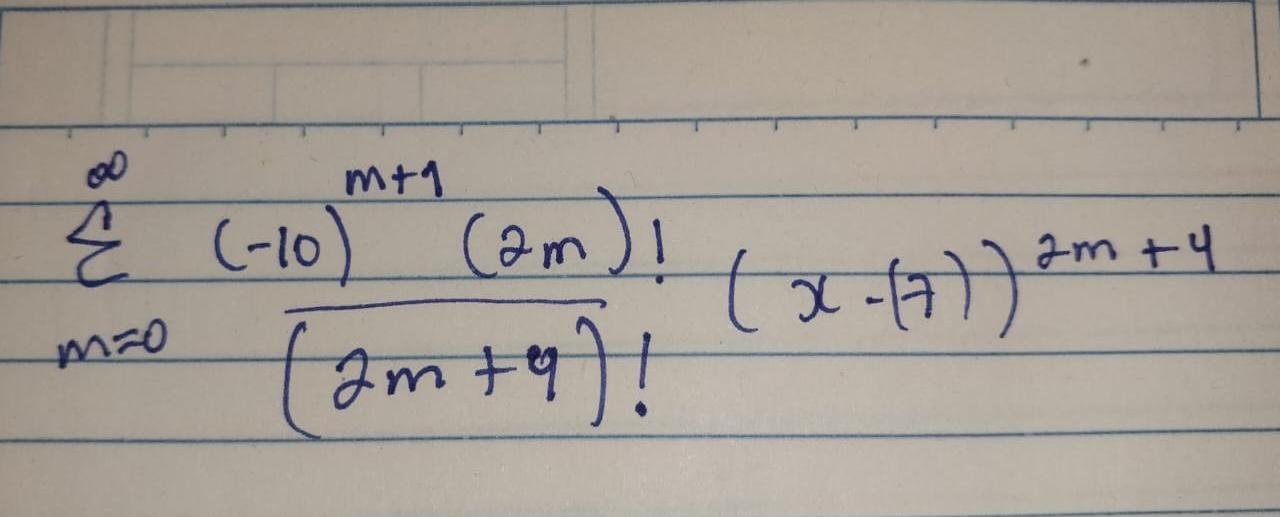 ∞
Σ
m=0
(-10)^{m+1} (2m)!
(2m+9)!
(x-(7))^{2m+4}